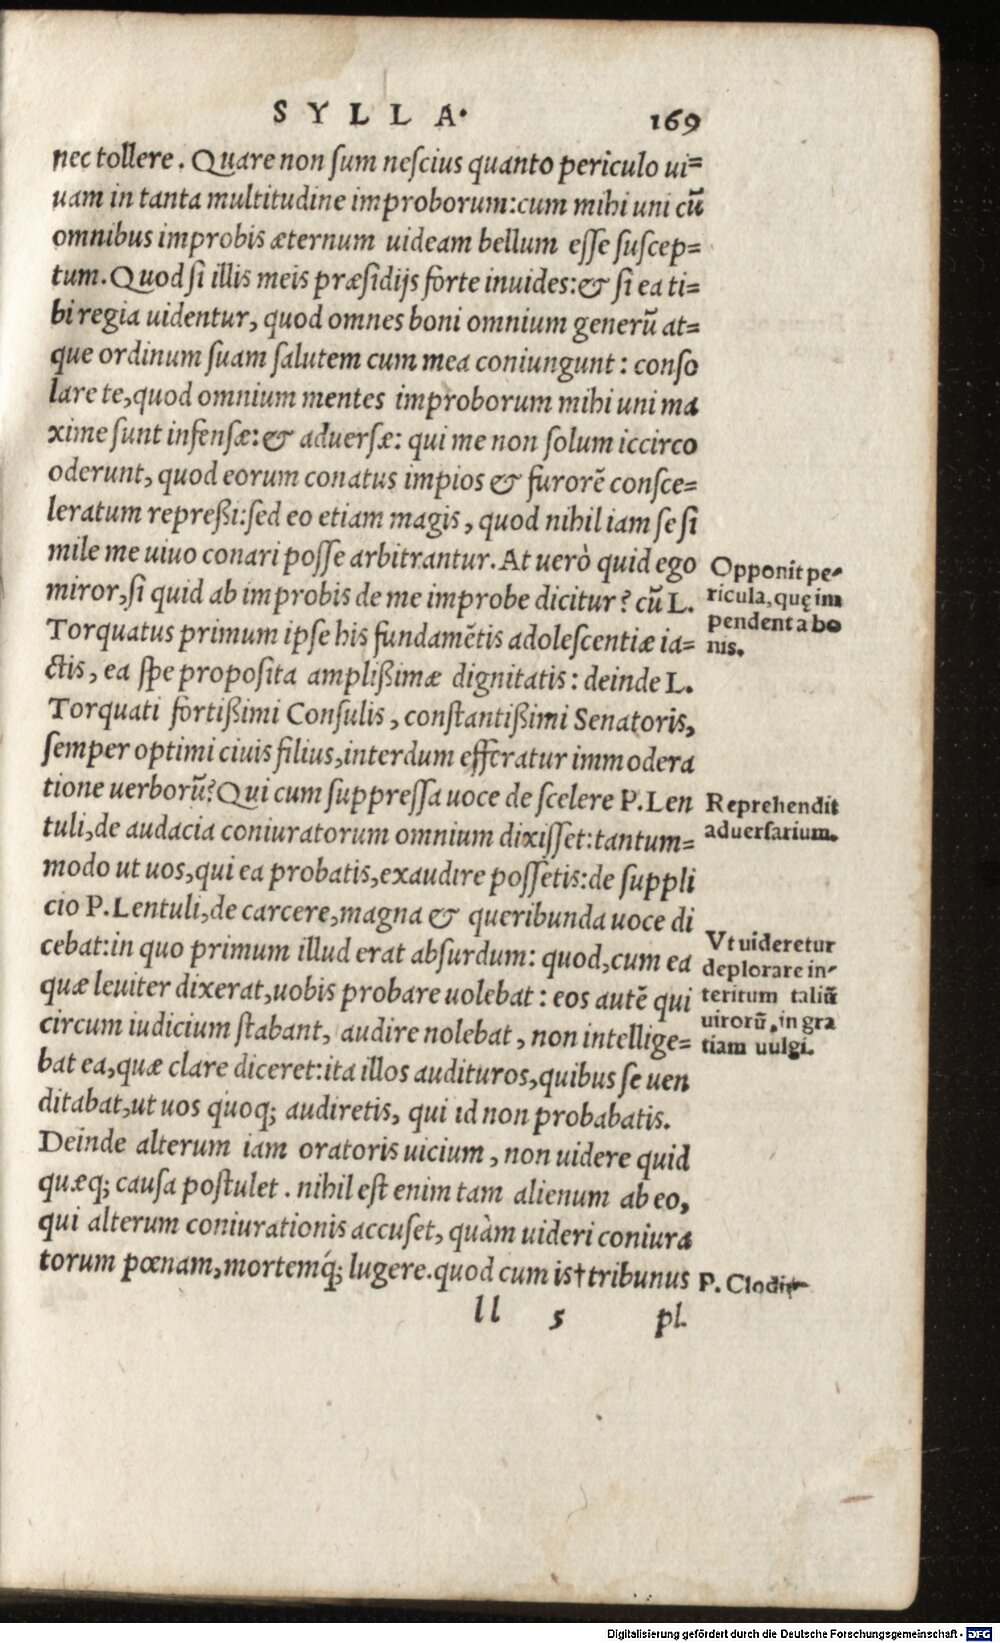 SYLLA. 169
nec tollere. Quare non ſum neſcius quanto periculo ui=
uam in tanta multitudine improborum: cum mihi uni cū
omnibus improbis æternum uideam bellum eſſe ſuſcep=
tum. Quod ſi illis meis præſidijs forte inuides: & ſi ea ti=
bi regia uidentur, quod omnes boni omnium generū at=
que ordinum ſuam ſalutem cum mea coniungunt: conſo
lare te, quod omnium mentes improborum mihi uni ma
xime ſunt infenſæ: & aduerſæ: qui me non ſolum iccirco
oderunt, quod eorum conatus impios & furorē conſce=
leratum repreßi: ſed eo etiam magis, quod nihil iam ſe ſi
mile me uiuo conari poſſe arbitrantur. At uerò quid ego
miror, ſi quid ab improbis de me improbe dicitur? cū L.
Torquatus primum ipſe his fundamētis adoleſcentiæ ia=
ctis, ea ſpe propoſita amplißimæ dignitatis: deinde L.
Torquati fortißimi Conſulis, conſtantißimi Senatoris,
ſemper optimi ciuis filius, interdum efferatur immodera
tione uerborū? Qui cum ſuppreſſa uoce de ſcelere P. Len
tuli, de audacia coniuratorum omnium dixiſſet: tantum=
modo ut uos, qui ea probatis, exaudire poſſetis: de ſuppli
cio P. Lentuli, de carcere, magna & queribunda uoce di
cebat: in quo primum illud erat abſurdum: quod, cum ea
quæ leuiter dixerat, uobis probare uolebat: eos autē qui
circum iudicium ſtabant, audire nolebat, non intellige=
bat ea, quæ clare diceret: ita illos audituros, quibus ſe uen
ditabat, ut uos quoq; audiretis, qui id non probabatis.
Deinde alterum iam oratoris uicium, non uidere quid
quæq; cauſa poſtulet. nihil eſt enim tam alienum ab eo,
qui alterum coniurationis accuſet, quàm uideri coniura
torum pœnam, mortemq́; lugere. quod cum is † tribunus
ll 5 pl.
Opponit pe-
ricula, quę im
pendent a bo
nis.
Reprehendit
aduerſarium.
Vt uideretur
deplorare in-
teritum taliū
uirorū, in gra
tiam uulgi.
P. Clodi
Digitalisierung gefördert durch die Deutsche Forschungsgemeinschaft - DFG